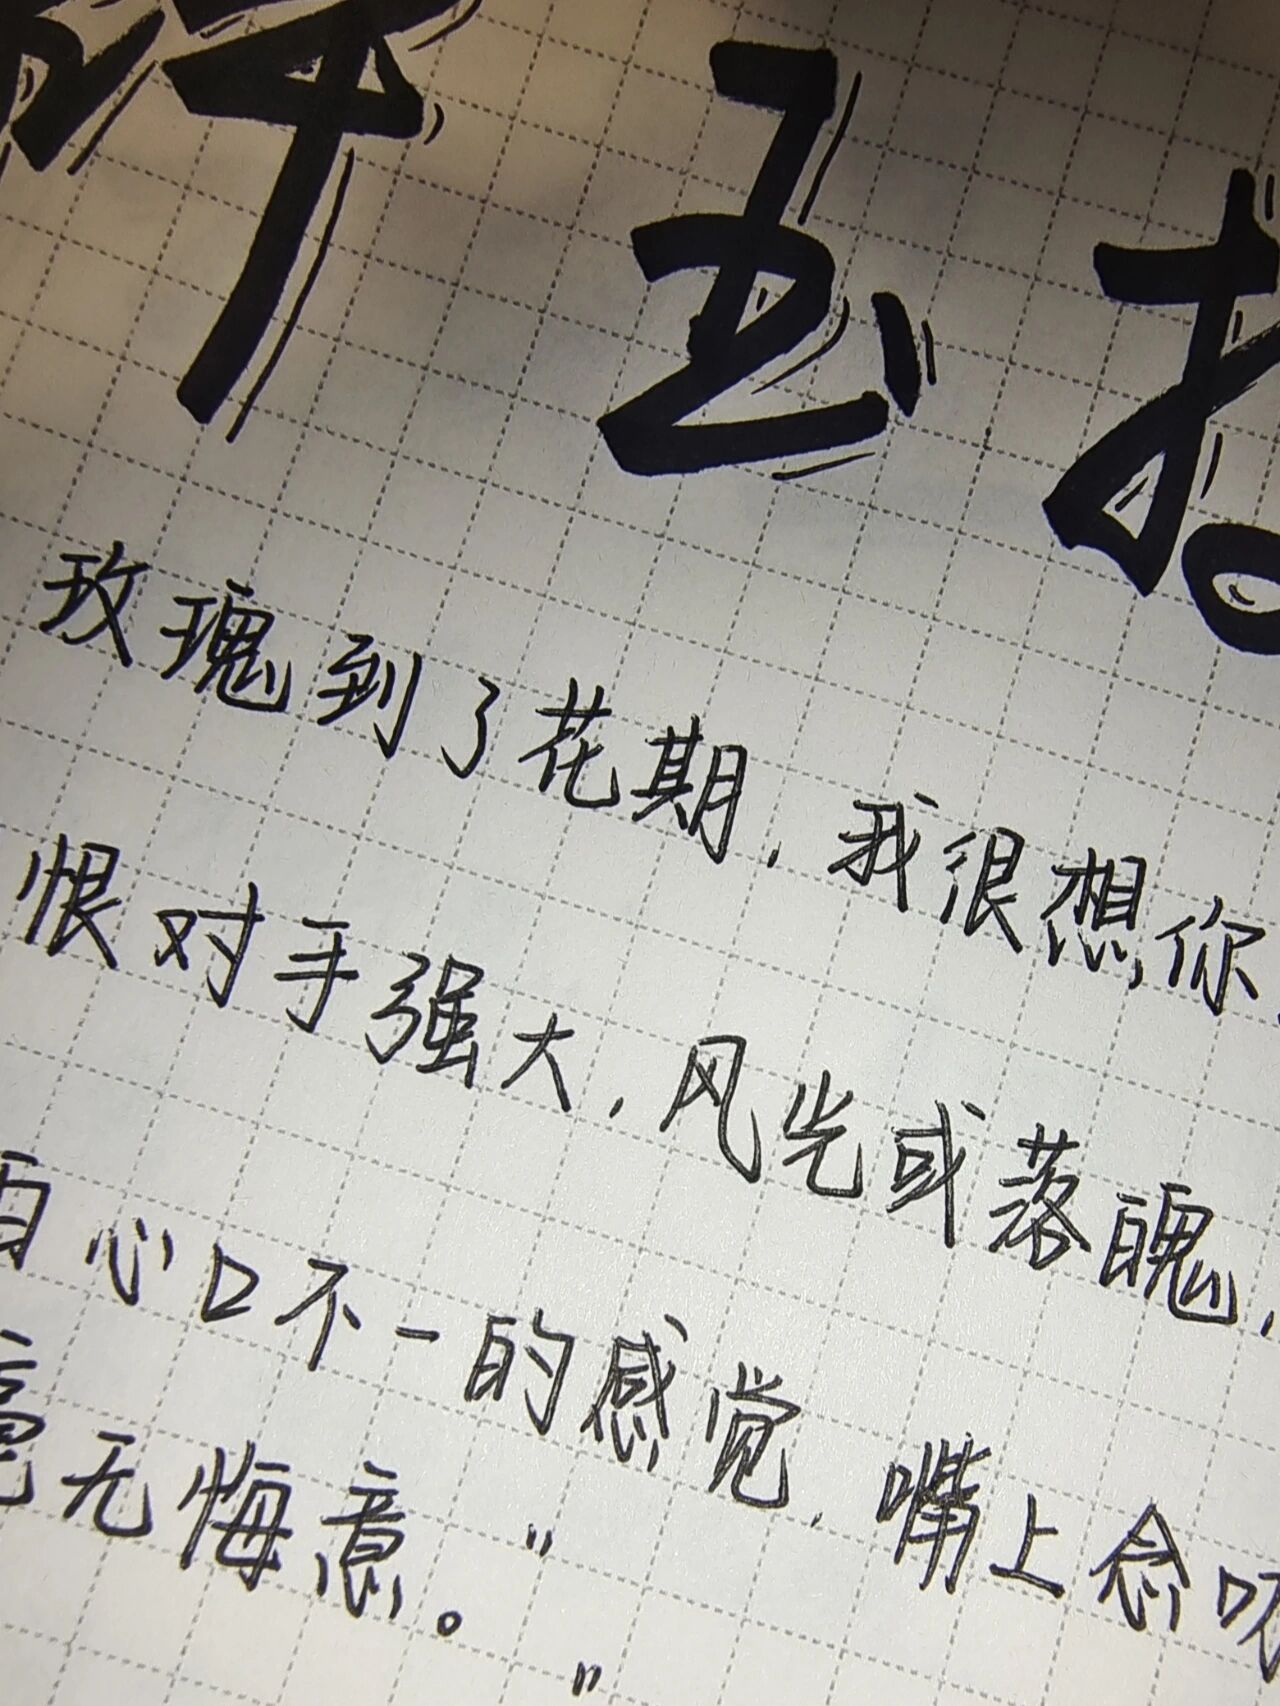 玉
玫瑰到了花期，我很想你
恨对手强大，风光或落魄，
心口不一的感觉，嘴上念
毫无悔意。"
"